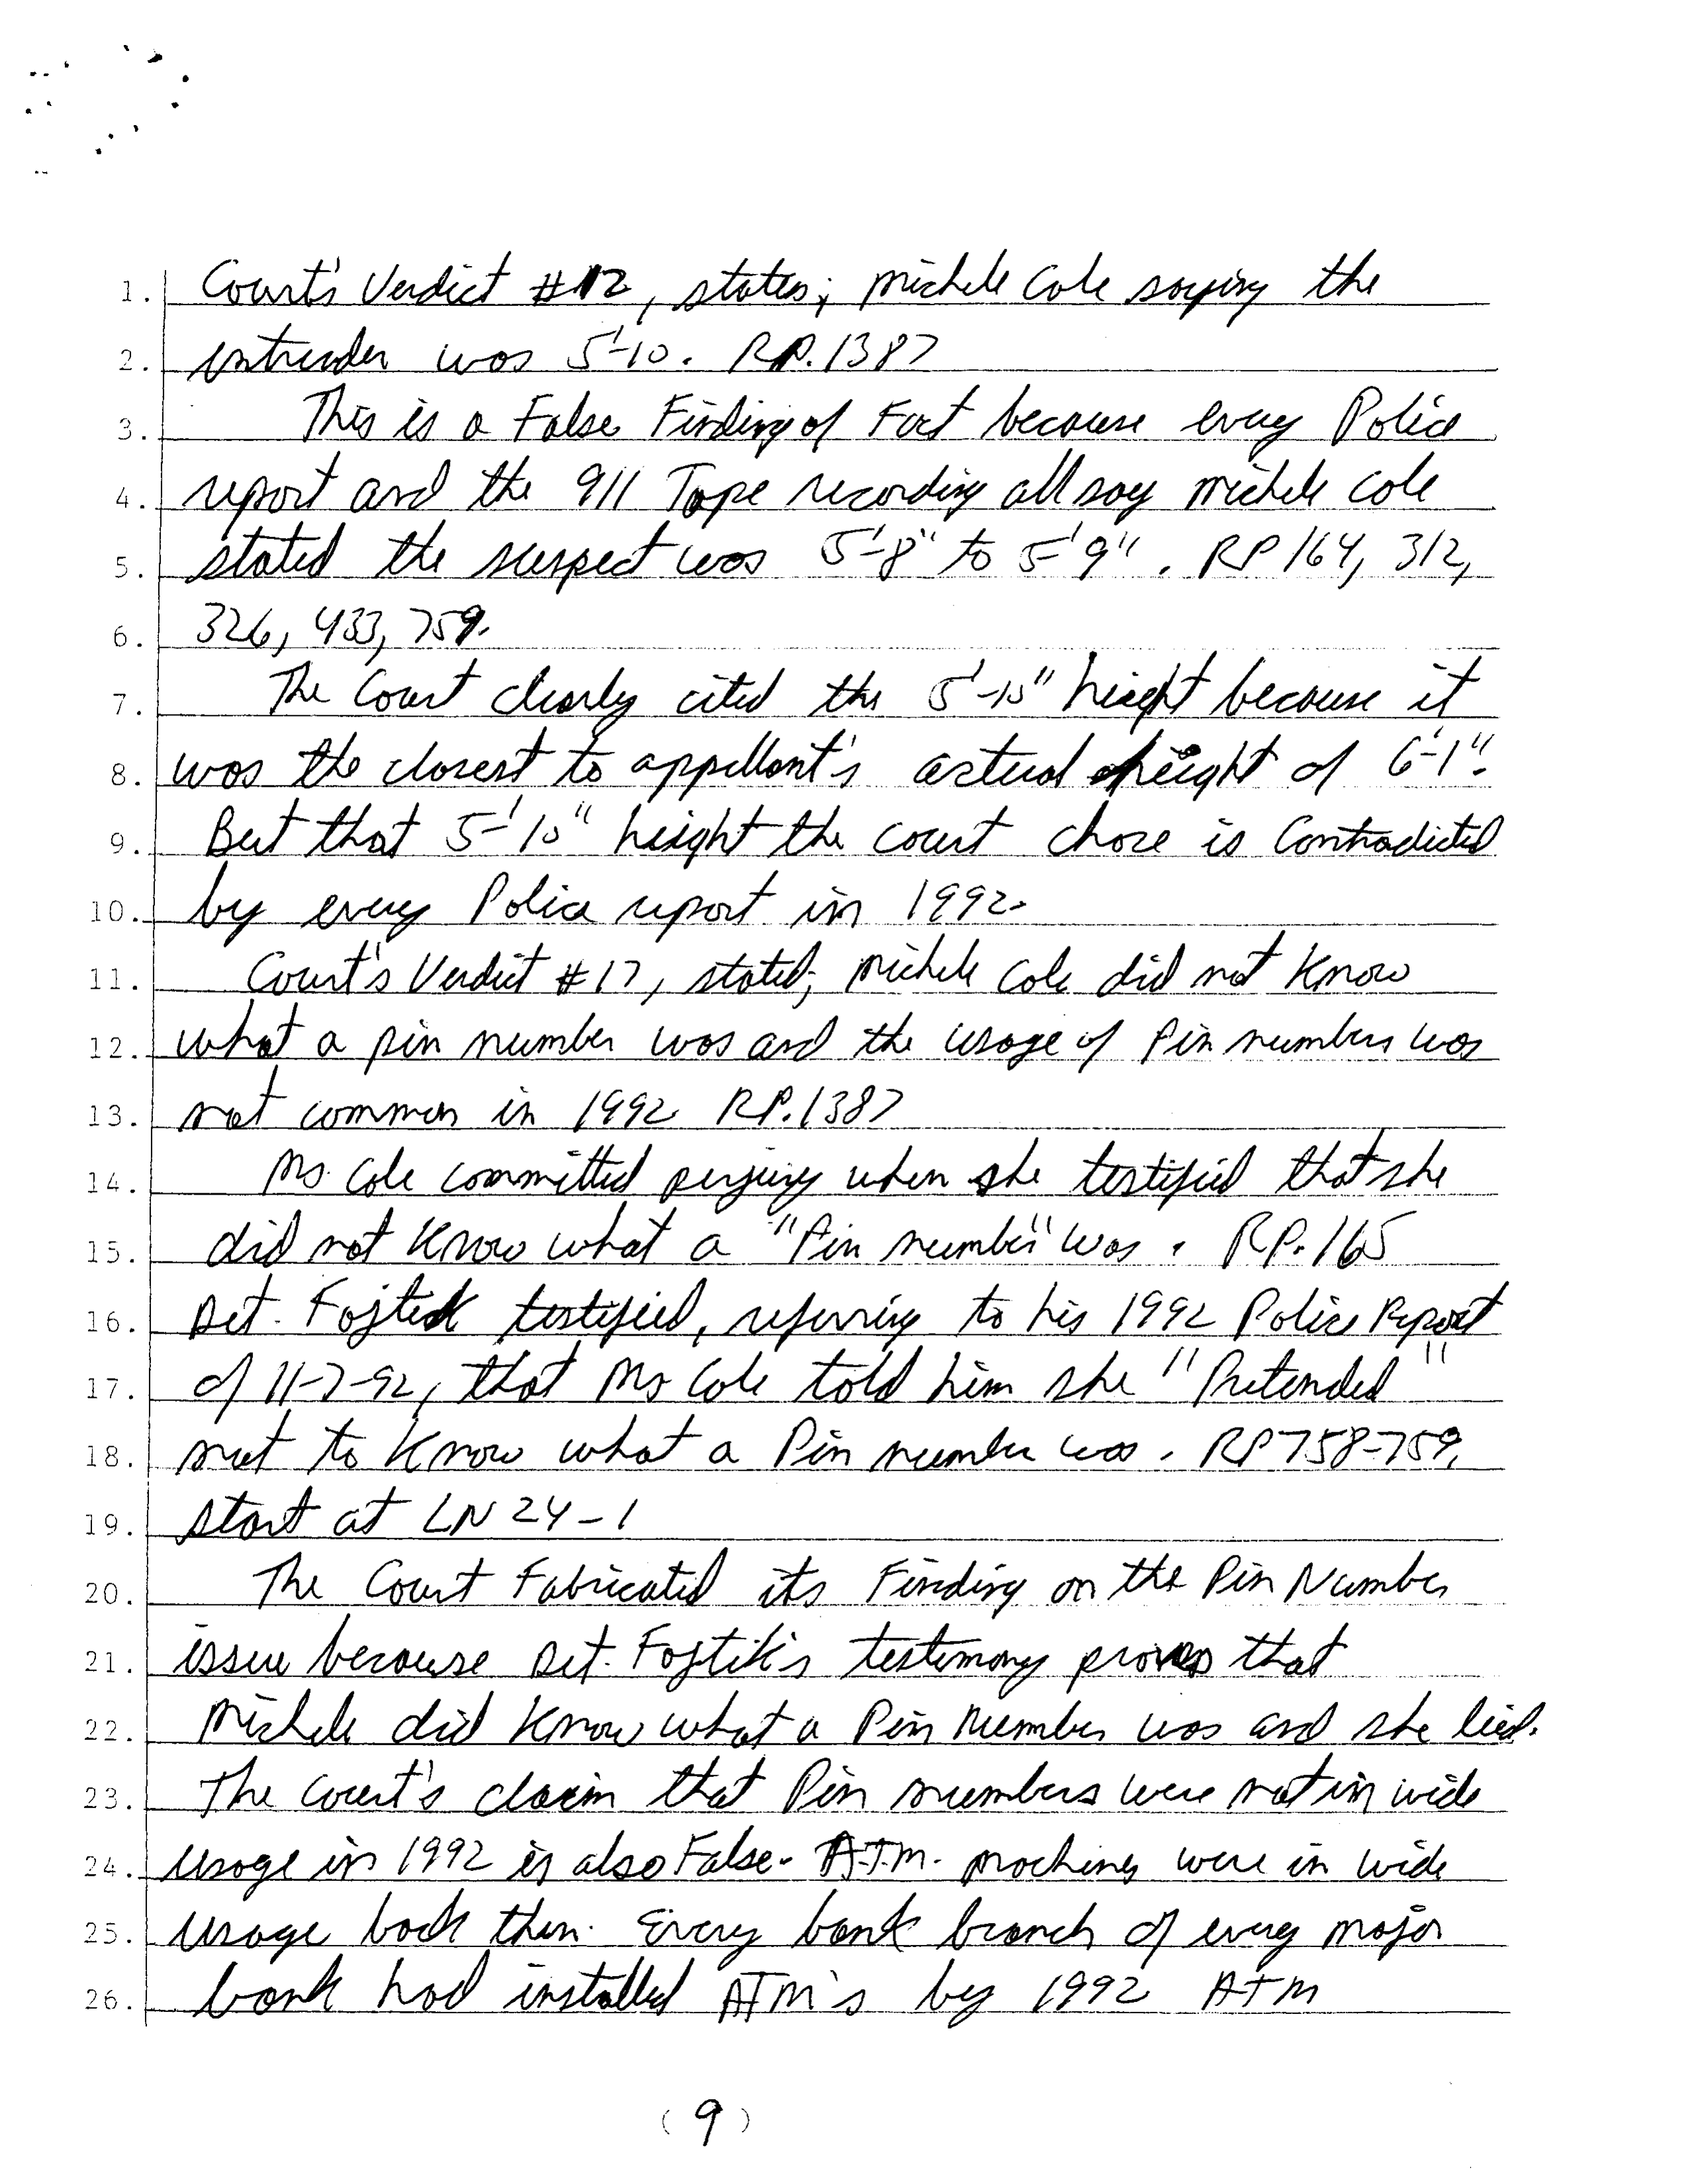 1. Court's Verdict #12, states; Michele Cole saying the
2. intruder was 5'-10. RP. 1387
3. This is a False Finding of Fact because every Police
4. report and the 911 Tape recording all say Michele Cole
5. stated the suspect was 5'-8" to 5'9". RP 164, 312,
6. 326, 433, 759.
7. The Court clearly cited the 5'-10" height because it
8. was the closest to appellant's actual height of 6'-1".
9. But that 5'10" height the court chose is Contradicted
10. by every Police report in 1992.
11. Court's Verdict #17, stated; Michele Cole did not Know
12. what a pin number was and the usage of Pin numbers was
13. not common in 1992 RP. 1387
14. Ms. Cole committed perjury when she testified that she
15. did not Know what a "Pin number" was. RP. 165
16. Det. Fojtik testified, referring to his 1992 Police Report
17. of 11-7-92, that Ms Cole told him she "Pretended"
18. not to Know what a Pin number was. RP 758-759,
19. start at LN 24-1
20. The Court Fabricated its Finding on the Pin Number
21. issue because Det. Fojtik's testimony proves that
22. Michele did Know what a Pin Number was and she lied.
23. The Court's claim that Pin numbers were not in wide
24. usage in 1992 is also False. A.T.M. machines were in wide
25. usage back then. Every bank branch of every major
26. bank had installed ATM's by 1992 ATM
(9)